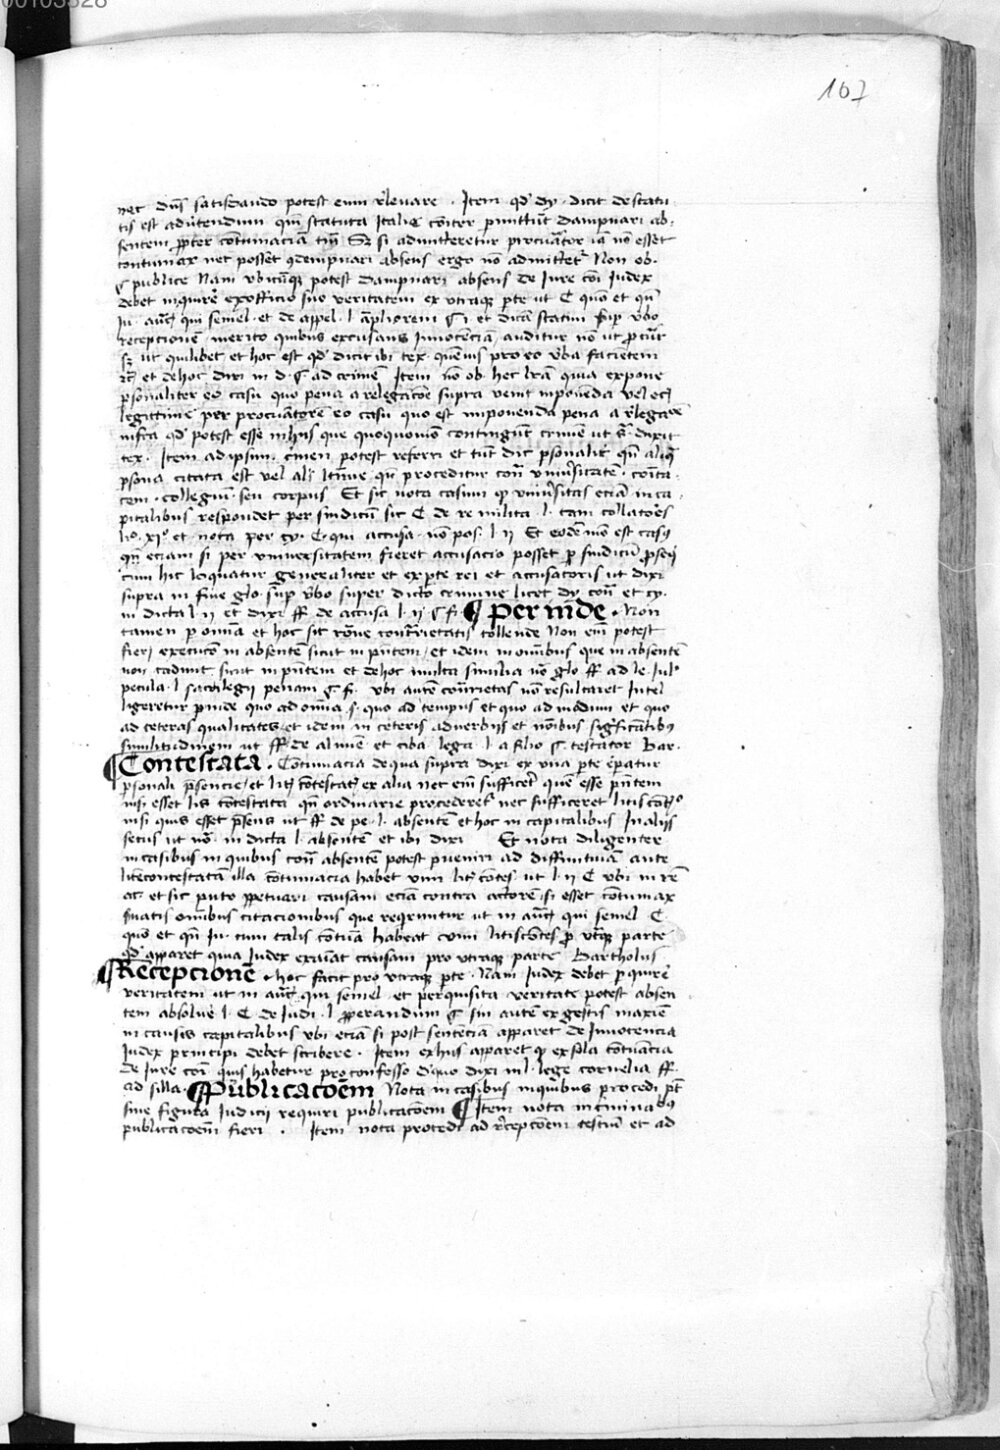 00103328
107
nec dn̄s satisdando potest eum r̄leuare · Item qd̓ dy · dicit de statu
tis est aduertendum qm̄ statuta Italie cōiter p̱mittūt dampnari ab-
sentem ꝓpter cōtumaciā tm̄ Sꝫ si admitteretur procūator iā nō esset
contumax nec posset ꝯdempnari absens ergo nō admittet͛ Non ob·
§ publice Nam vbicūqꝫ potest dampnari absens de Iure cōi Iudex
debet inquire͛ ex officio suo veritatem ex vtraqꝫ ꝑte ut C quo et qn̄
Iu · auct̄ qui semel · et de appel · l āpliorem § I · et dicā statim sup̱ v̄bo
recepcionē · merito quibus excusans Innocēciā · auditur nō ut ꝓcūr
sꝫ ut quilibet et hoc est qd̓ dicit ibi tex · quēuis pro eo v̄ba facientem
rc̄ et de hoc dixi in d · § ad crimē Item nō ob · hec lr̄a quia expone
ꝑsonaliter eo casu quo pena a relegacōe supra venit inponēda vel ec̄
legittime per procuātorē eo casu quo est imponenda pena a r̄legacōe
infra qd̓ potest esse in hijs que quoquomō contingūt crimē ut s̄ · dixit
tex · Item ad ipsum · cimen potest referri et tūc dic ꝑsonalit͛ qn̄ aliq̄
ꝑsona citata est vel alr̄ l̄time qn̄ proceditur cont̄ vniu͛sitatē · cōita-
tem · collegiū · seu corpus Et sic nota casum ꝙ vniu͛sitas eciā in ca-
pitalibus respondet per sindicū sic C de re milita · l · tam collatōes
li° · xij° et nota per cy · C · qui accusa · nō pos · l · ij Et eodē mō est casꝰ
qn̄ eciam si per vniuersitatem fieret accusacio posset ꝑ sindicū ꝓseq̄
cum hic loquatur generaliter et ex ꝑte rei et accusatoris ut dixi
supra in fine glo · sup̱ v̄bo super dicto crimine licet dy cont̄ et cy ·
in dicta l · ij et dixi ff de accusa l · ij § fi · ¶ Per inde · Non
tamen ꝑ omnia et hoc sit rōne contrarietatis tollende Non em̄ potest
fieri execucō in absentē sicut in pn̄tem · et idem in omībus que in absentē
non cadunt sicut in pn̄tem et de hoc multa similia nō glo ff ad le · Iul°
pecula · l sacrilegij penam § fi · vbi autē cont̄rietas nō resultaret Intel
ligeretur ꝑinde quo ad omīa · s · quo ad tempus et quo ad modum et quo
ad ceteras qualitates et idem in ceteris aduerbijs et nōibus sigficātibꝰ
similitudinem ut ff de alimē · et ciba · lega · l · a filio § testator Bar ·
¶ Contestata · Cōtumacia de qua supra dixi ex vna ꝑte ēpatur
ꝑsonali p̄sencie · et lit̄ cōtestac̄ ex alia nec em̄ sufficeret̄ quē esse pn̄tem
nisi esset lis cōtestata qn̄ ordinarie procederet͛ nec sufficeret litis cōt°
nisi quis esset p̄sens ut ff de pe · l · absentē et hoc in capitalibus In alijs
secus ut nō · in dicta l · absentē et ibi dixi Et nota diligenter
in casibus in quibus cont̄ absentē potest ꝑueniri ad diffinitiuā ante
litēcontestatā illa cōtumacia habet vim lit̄ cōtes · ut l · ij C vbi in rē
ac̄ · et sic puto ꝑpetuari causam eciā contra actōrē · si esset cōtumax
s̄uatis omībus citacionibus que reqiruntur ut in auct̄ qui semel C
quo et qn̄ Iu · cum talis cōtuā habeat vim litiscōtes ꝑ vtāqꝫ parte
qd̓ apparet quia Iudex exaīat causam pro vtraqꝫ parte Bartholus
¶ Recepcionē · hoc facit pro vtraqꝫ ꝑte · Nam Iudex debet ꝑquire͛
veritatem ut in auct̄ qui semel · et perquisita veritate potest absen-
tem absolue͛ l · C de Iudi · l · ꝓperandum § sin autē ex gestis maxie
in causis capitalibus vbi eciā si post sentēciā apparet de Innocencia
Iudex principi debet scribere · Item ex hijs apparet ꝙ ex sola cōtuacia
de Iure cōi quis habetur pro confesso de quo dixi in l · lege cornelia ff
ad silla · ¶ Publicacōem Nota in casibus in quibus procedi pt̄
sine figura Iudicij requiri publicacōem ¶ Item nota in c̄minaꝰ
publicacōem fieri · Item nota procedi ad r̄cepcōem testiū et ad